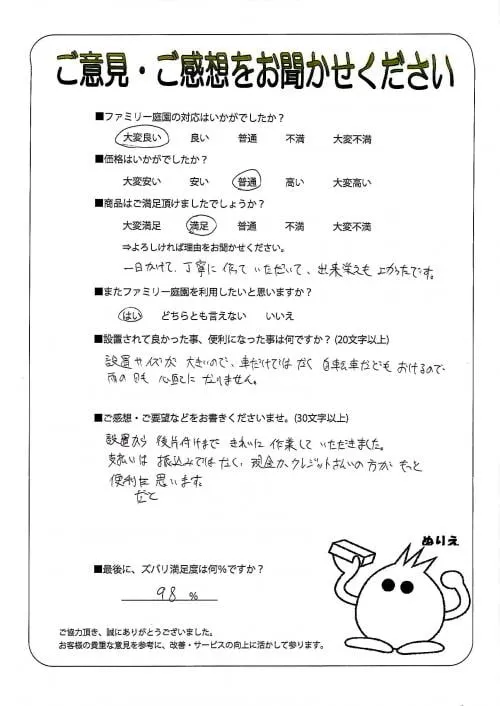 ご意見・ご感想をお聞かせください
■ファミリー庭園の対応はいかがでしたか？
大変良い 良い 普通 不満 大変不満
■価格はいかがでしたか？
大変安い 安い 普通 高い 大変高い
■商品はご満足頂けましたでしょうか？
大変満足 満足 普通 不満 大変不満
⇒よろしければ理由をお聞かせください。
一日かけて、丁寧に作っていただいて、出来栄えも上々です。
■またファミリー庭園を利用したいと思いますか？
はい どちらとも言えない いいえ
■設置されて良かった事、便利になった事は何ですか？（20文字以上）
設置サイズが大きいので、車だけではなく自転車なども おけるので
雨の日も心配になりません。
■ご感想・ご要望などをお書きくださいませ。（30文字以上）
設置から後片付けまで きれいに作業していただきました。
支払いは振込みではなく、現金かクレジット払いの方がもっと
便利 思います。
だと
ぬりえ
■最後に、ズバリ満足度は何％ですか？
98 %
ご協力頂き、誠にありがとうございました。
お客様の貴重な意見を参考に、改善・サービスの向上に活かして参ります。